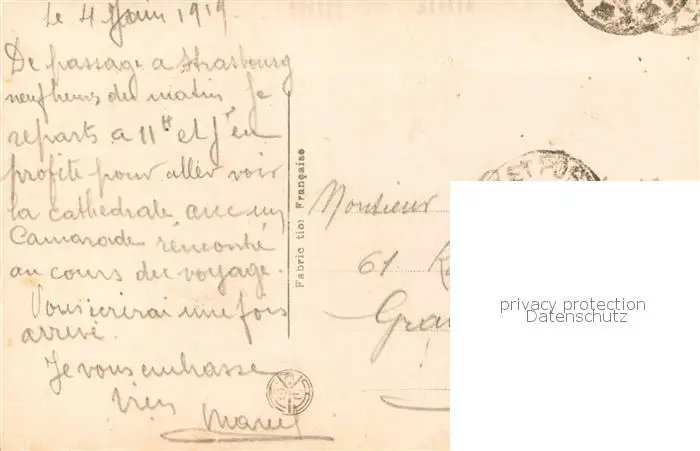 Le 4 Juin 1919
De passage a Strasbourg
neuf heures du matin, Je
reparts a 11H et J'en
profite pour aller voir
la cathedrale avec un
Camarade rencontré
au cours du voyage.
Vous ecrirai une fois
arrivé.
Je vous embrasse
bien
Marcel
Fabrication Française
Monsieur
61 R
Gra
privacy protection
Datenschutz